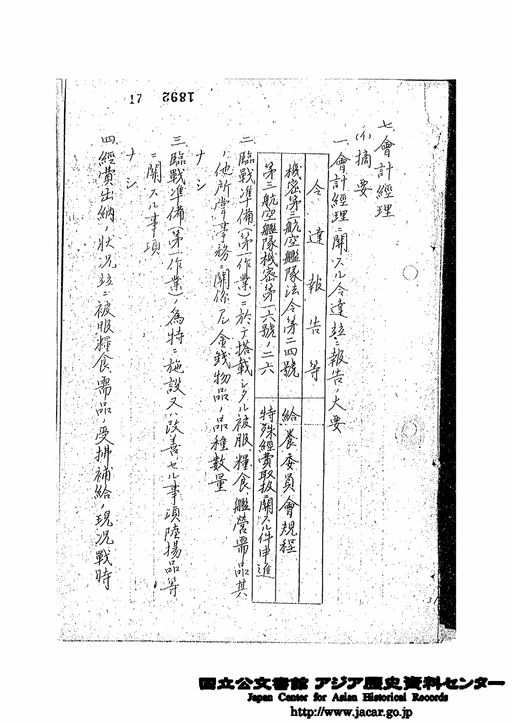 1892
17
七、會計經理
(イ)摘要
一、會計經理ニ關スル令達竝ニ報告ノ大要
令達報告等
機密第三航空艦隊法令第二四號
給養委員會規程
第三航空艦隊機密第一六號ノ二六
特殊經費取扱ニ關スル件申進
二、臨戰準備(第一作業)ニ於テ搭載シタル被服糧食、艦營需品其
ノ他所掌事務ニ關係アル金錢物品ノ品種數量
ナシ
三、臨戰準備(第一作業)ノ為特ニ施設又ハ改善セル事項陸揚品等
ニ關スル事項
ナシ
四、經費出納ノ狀況竝ニ被服糧食、需品ノ受拂補給ノ現況戰時
国立公文書館 アジア歴史資料センター
Japan Center for Asian Historical Records
http://www.jacar.go.jp